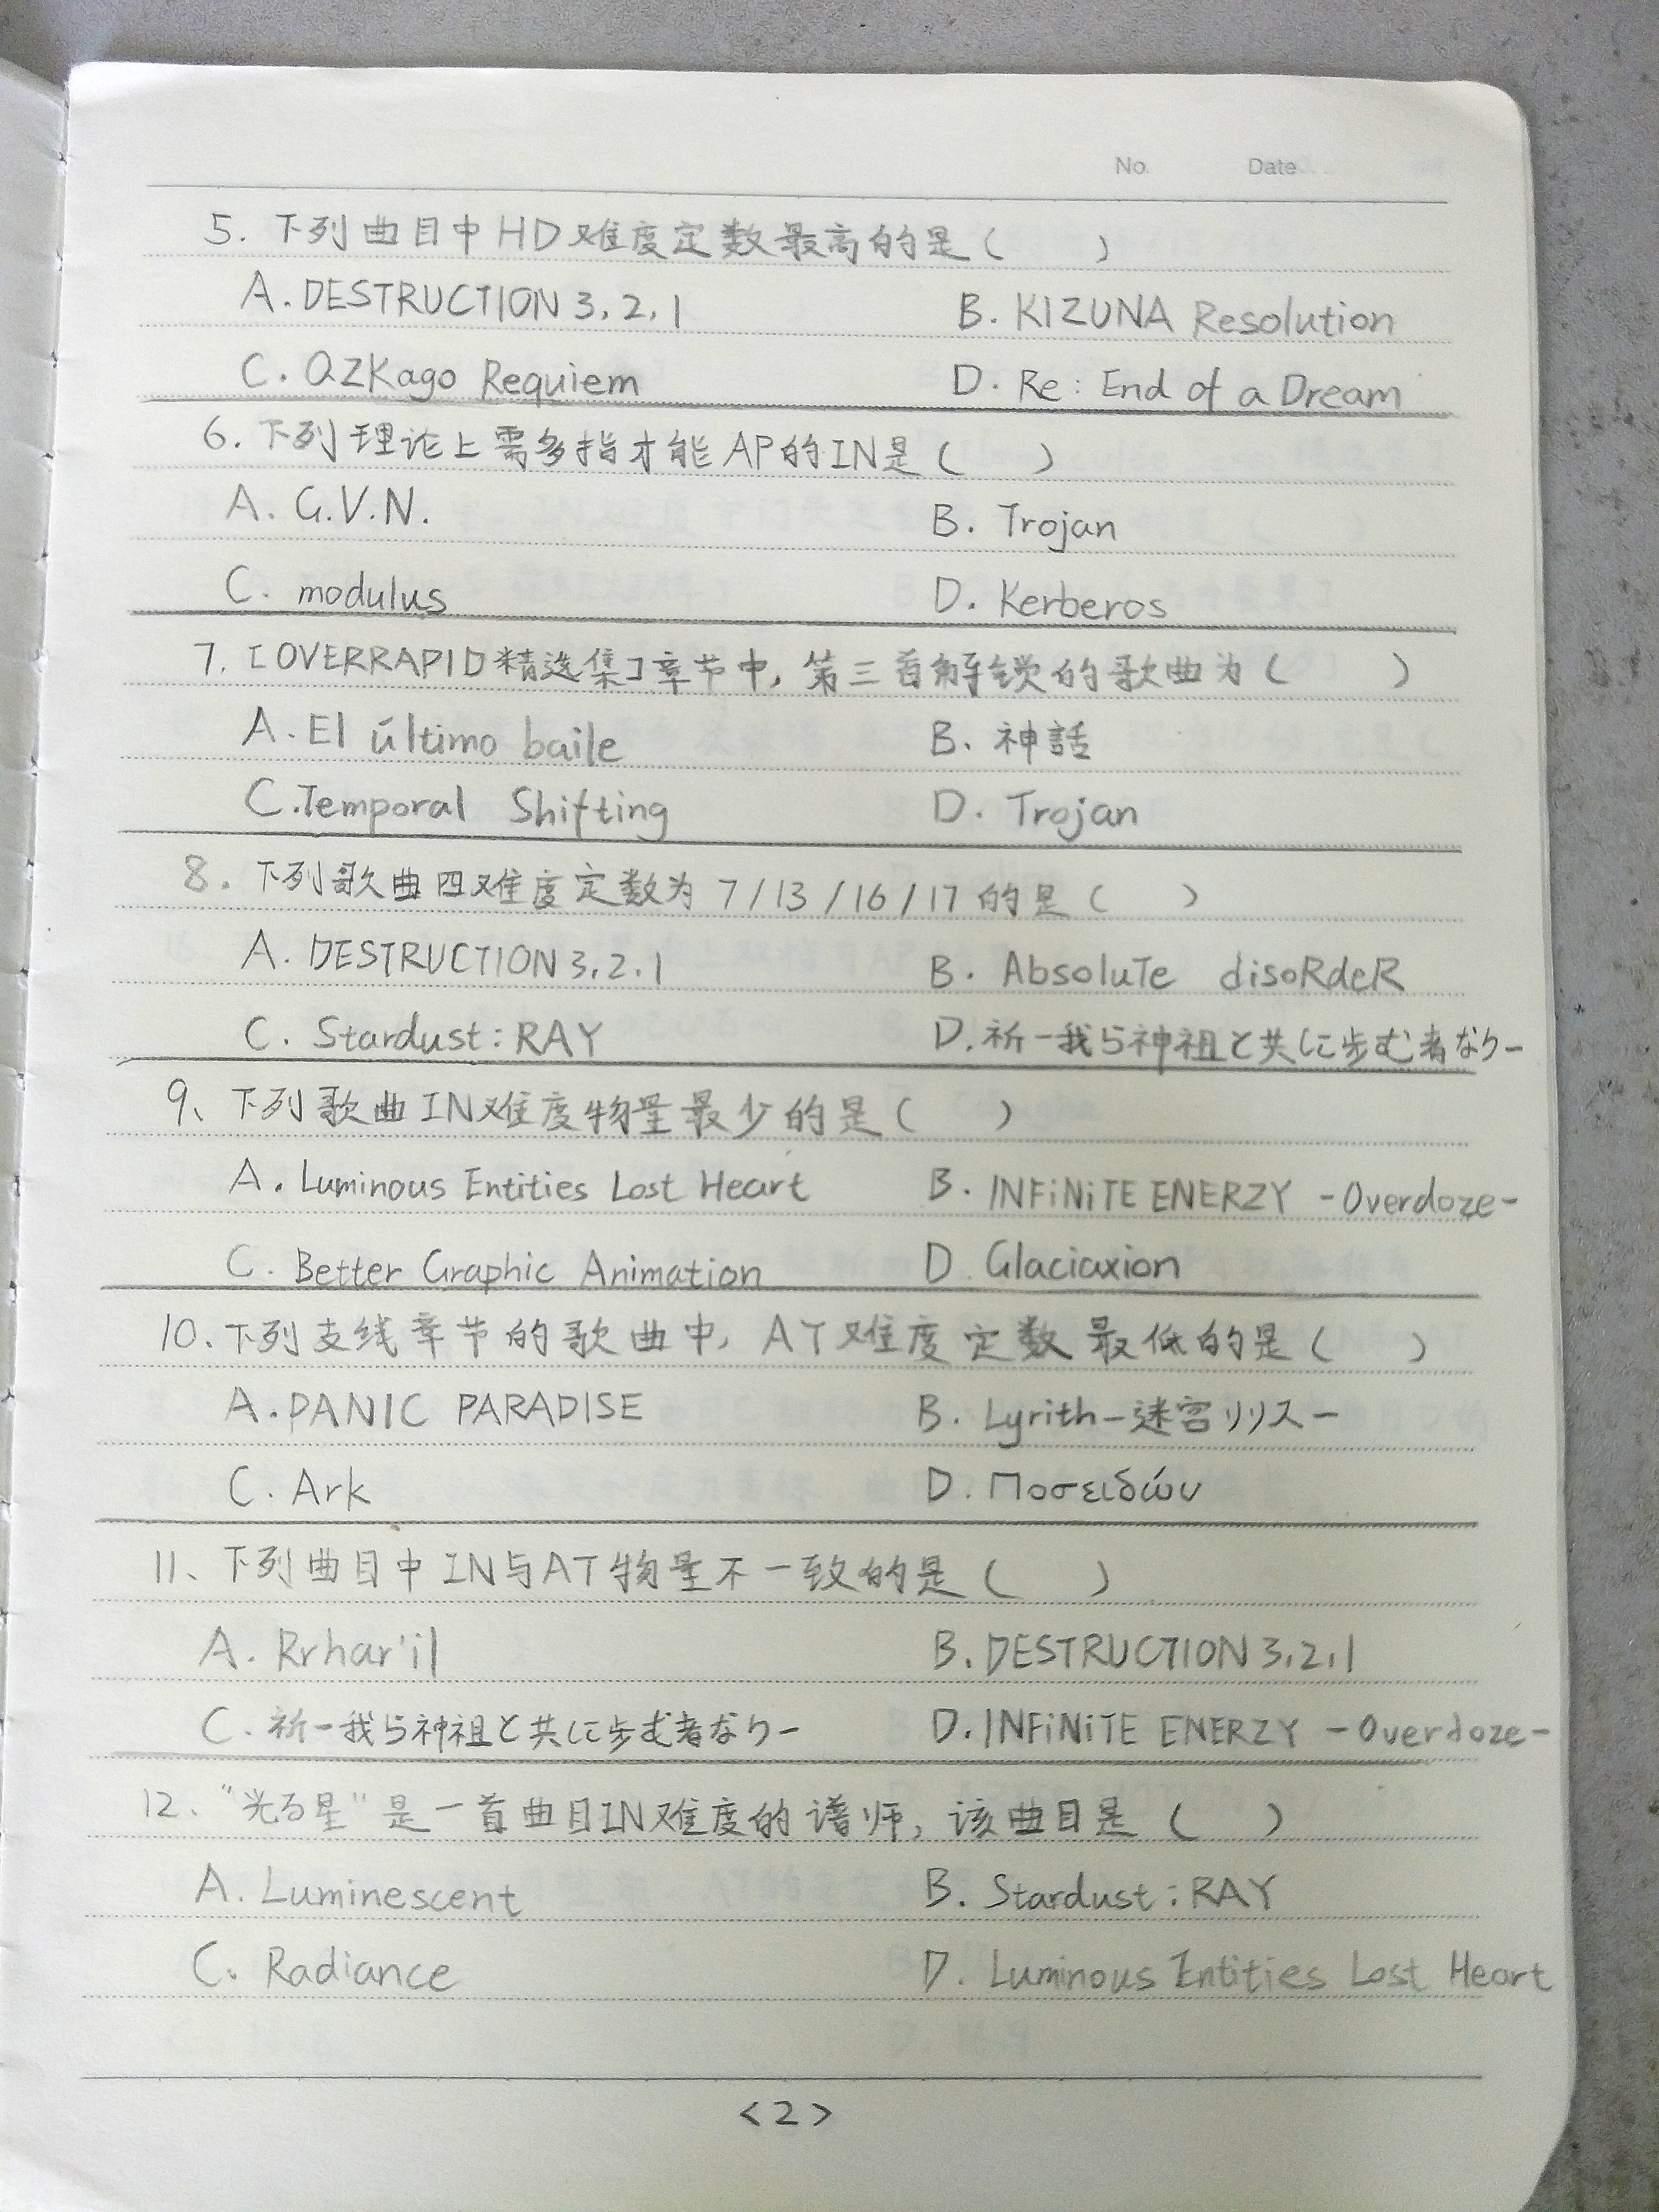 No. Date
5. 下列曲目中HD难度定数最高的是( )
A. DESTRUCTION 3,2,1 B. KIZUNA Resolution
C. QZKago Requiem D. Re: End of a Dream
6. 下列理论上需多指才能AP的IN是( )
A. G.V.N. B. Trojan
C. modulus D. Kerberos
7. [OVERRAPID精选集]章节中, 第三首解锁的歌曲为( )
A. El último baile B. 神話
C. Temporal Shifting D. Trojan
8. 下列歌曲四难度定数为 7/13/16/17 的是( )
A. DESTRUCTION 3.2.1 B. AbsoluTe disoRdeR
C. Stardust: RAY D. 祈-我ら神祖と共に歩む者なり-
9、下列歌曲IN难度物量最少的是( )
A. Luminous Entities Lost Heart B. INFiNiTE ENERZY -Overdoze-
C. Better Graphic Animation D. Glaciaxion
10、下列支线章节的歌曲中, AT难度定数最低的是( )
A. PANIC PARADISE B. Lyrith-迷宮リリス-
C. Ark D. Ποσειδών
11、下列曲目中IN与AT物量不一致的是( )
A. Rrhar'il B. DESTRUCTION 3,2,1
C. 祈-我ら神祖と共に歩む者なり- D. INFiNiTE ENERZY -Overdoze-
12、"光る星"是一首曲目IN难度的谱师, 该曲目是( )
A. Luminescent B. Stardust: RAY
C. Radiance D. Luminous Entities Lost Heart
<2>